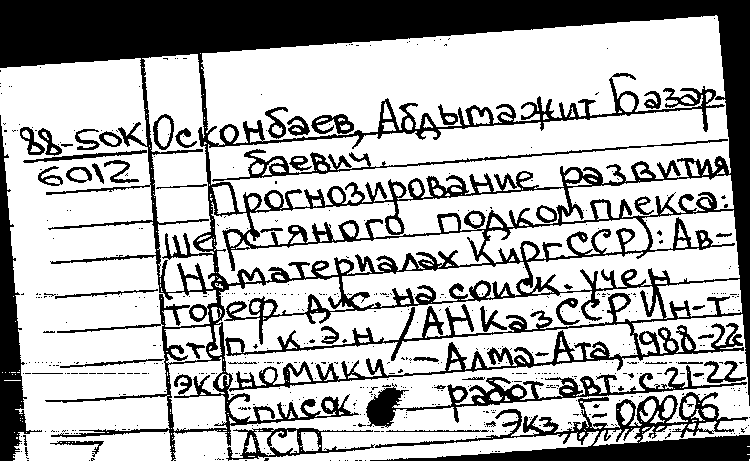 88-50K Осконбаев, Абдымажит Базар-
6012 баевич.
Прогнозирование развития
шерстяного подкомплекса:
(На материалах Кирг.ССР): Ав-
тореф. дис. на соиск. учен.
степ. к.э.н. / АН КазССР Ин-т
экономики. – Алма-Ата, 1988-22с
Список работ авт.: с 21-22
Экз. 00006
ДСП.